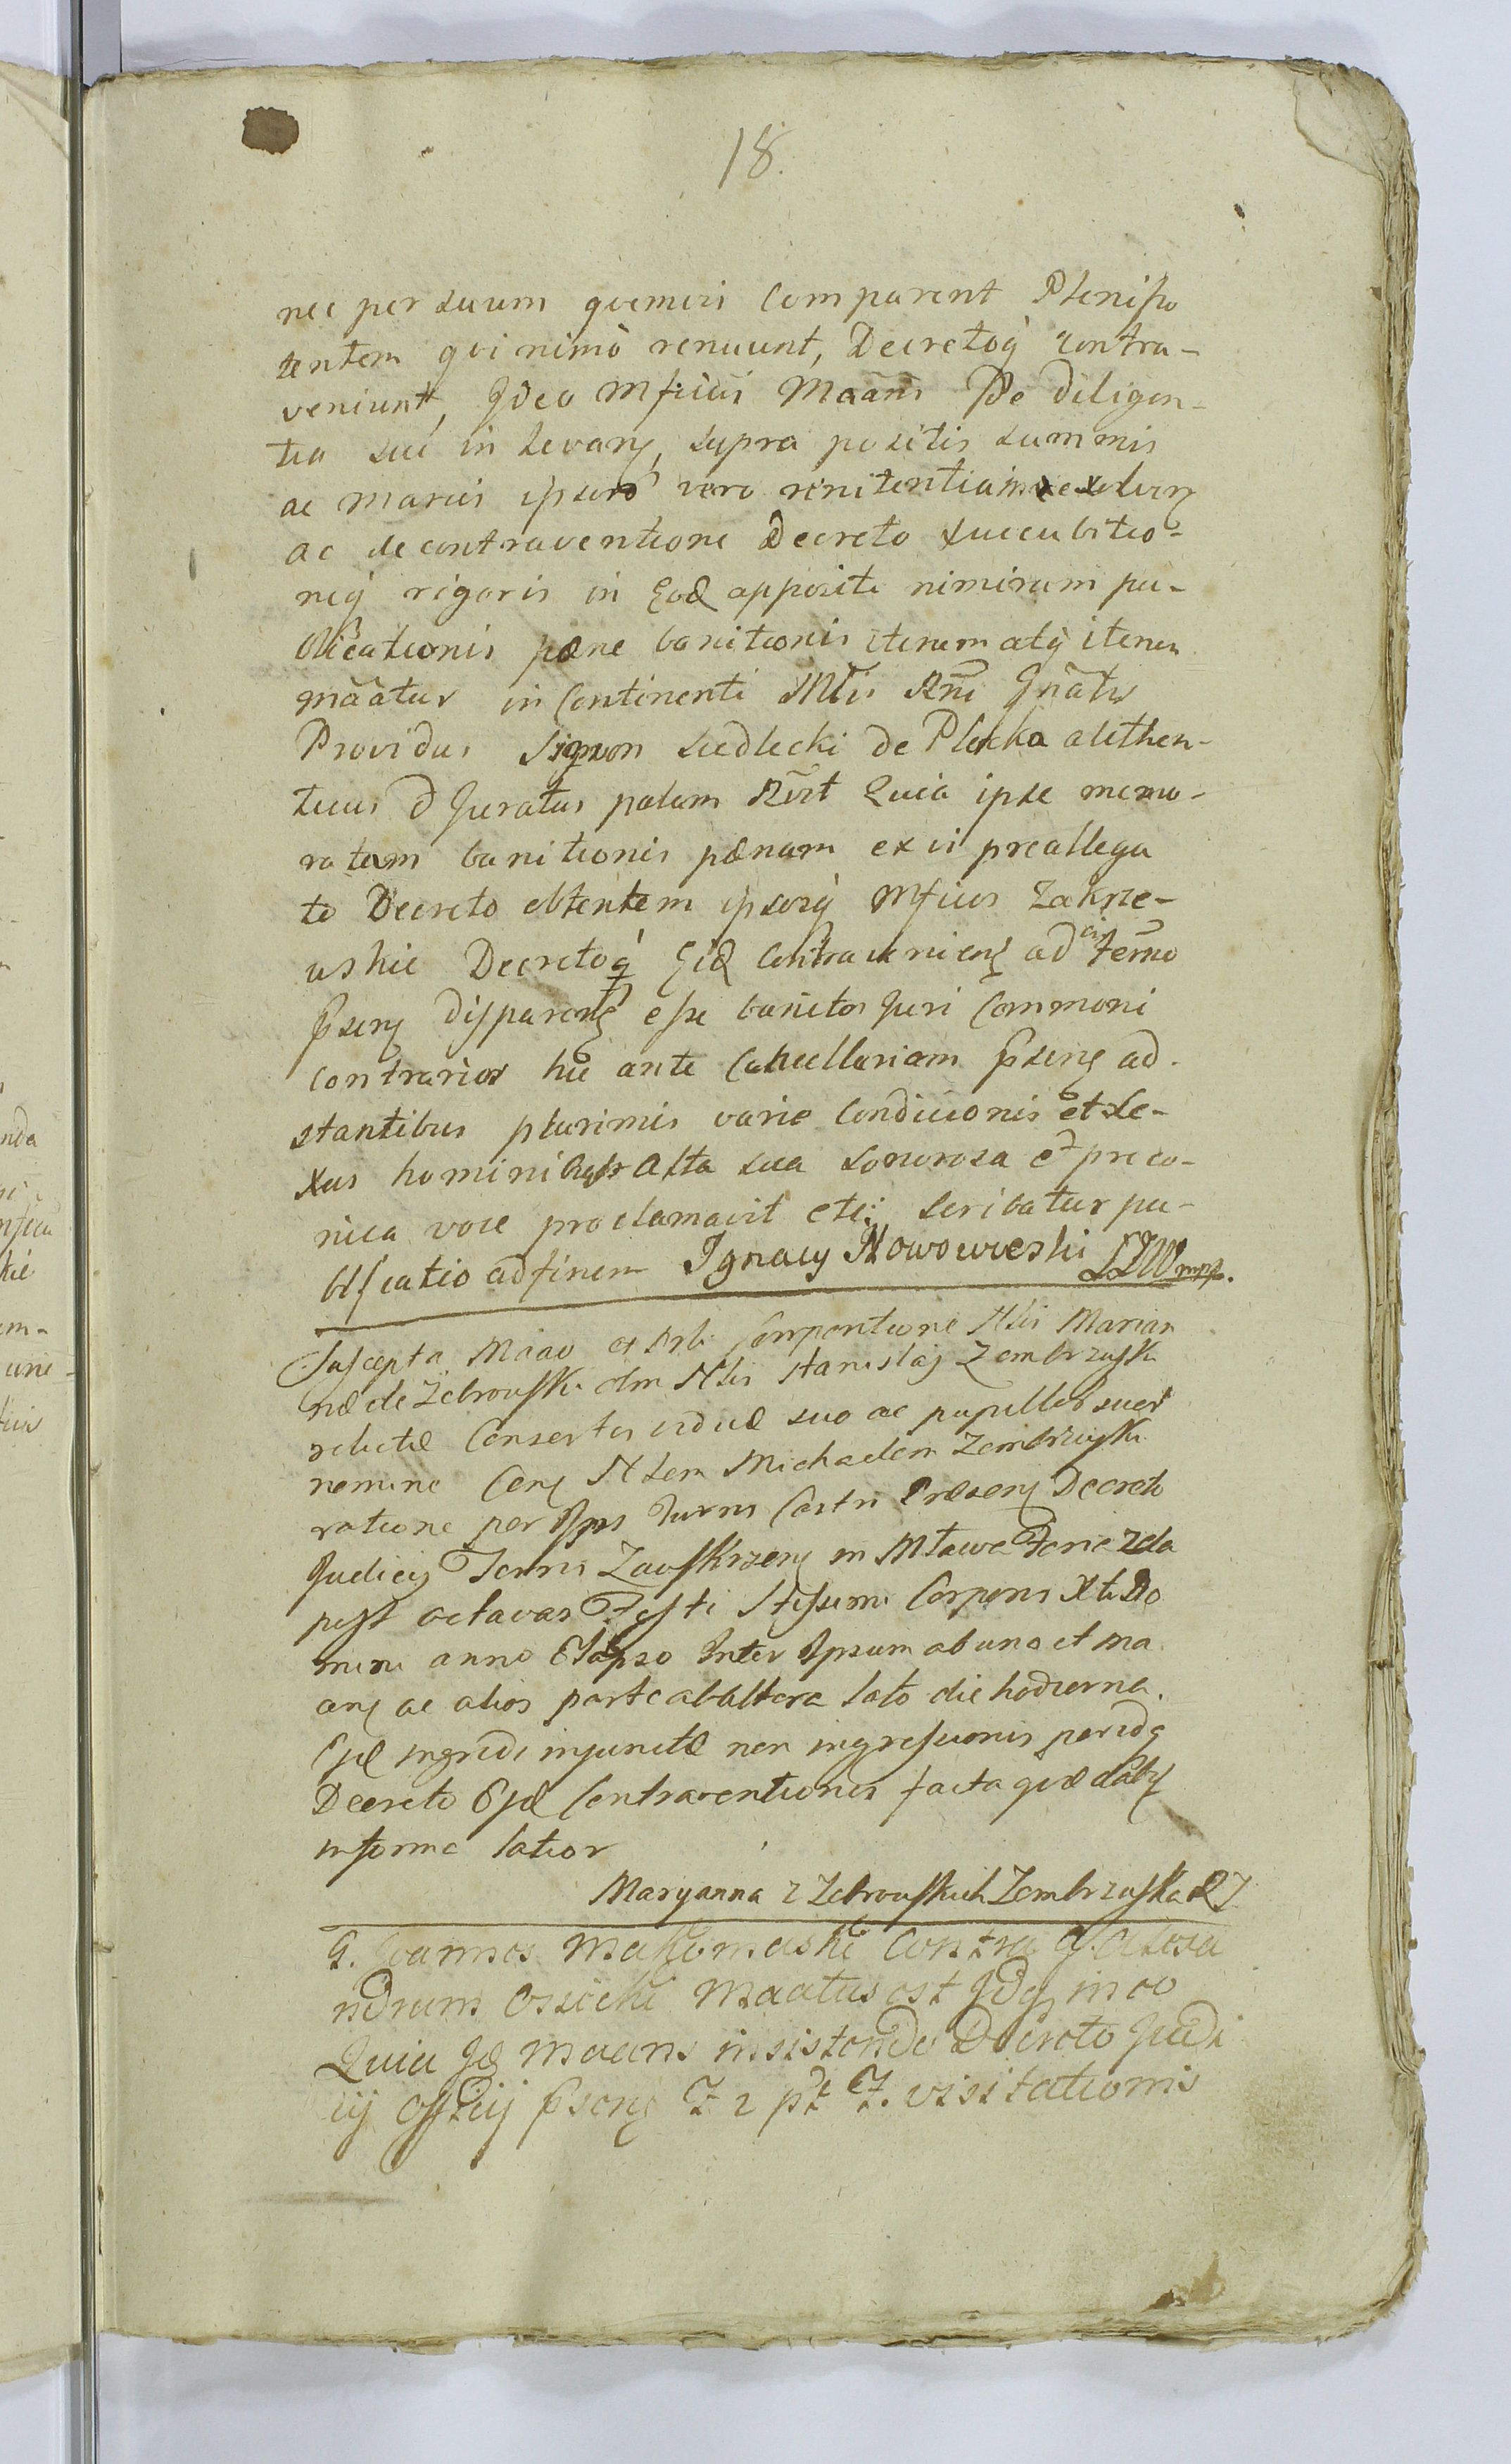 18.
nec per suum quemvis comparent Plenipo
tentem qvi nimò renuunt, Decretoq̀ contra-
veniunt, Ideo Mficus Maãns De diligen-
tia sui in levaņ, supra positis summis
ac marcis ipsorũ vero renitentia in exolven
ac de contraventione Decreto succubitio-
nisq rigoris in Eod apposite nimirum pu-
blicationis pæne banitionis iterum atq̀ iterum
mãatur in Continenti Mtis Rñi Gnãtis
Providus Szymon Siedlecki de Płocka
ticus D Juratus palam Rẽvt Quia ipse memo-
ratam banitionis pænam ex vi preallega
to Decreto obtentem ipsosq̀ Mficos Zakrze-
wskie Decretoq̀ Eid Contravenienȩ ad term̃o
Psenȩ Disparenȩ esse banitos Juri Commoni
contrarios hic ante Cancellariam Psenȩ ad-
stantibus plurimis varie Condicionis et Se-
xus hominibus Alta sua sonorosa et preco-
nica voce proclamavit etc: scribatur pu-
blicatio ad finem Ignacy Nowowieski mpp.
Suscepta Mãao ex Comportione Nlis Marian
næ de Zebrowski olm Nlis Stanislaj Zembrzuski
relictæ Consortis viduæ suo ac pupillor suor
nomine Cenȩ Nlem Michaelem Zembrzuski
ratione per Ips Jurus Castri Præsenȩ Decreto
Judicij Terris Zawskrzenȩ in Mława Ferie 2da
post octavas Festi Stissimi Corporis Xti Do
mini anno Elapso Inter Ipsum ab una et ma
anȩ ac alios parte ab altera lato die hodierna
Ejd ingredi injunctæ non ingressionis
Decreto Ejd Contraventionis facta qvæ dabȩ
in forma latior
Maryanna z Zebrowskich Zembrzuska
G. Joannes Makomaski Contra G Alexa
ndrum Ossiecki Maatus est Idq in eo
Quia Id maans insistendo Decreto Judi
cij Officij Psenȩ F 2 pt F. visitationis